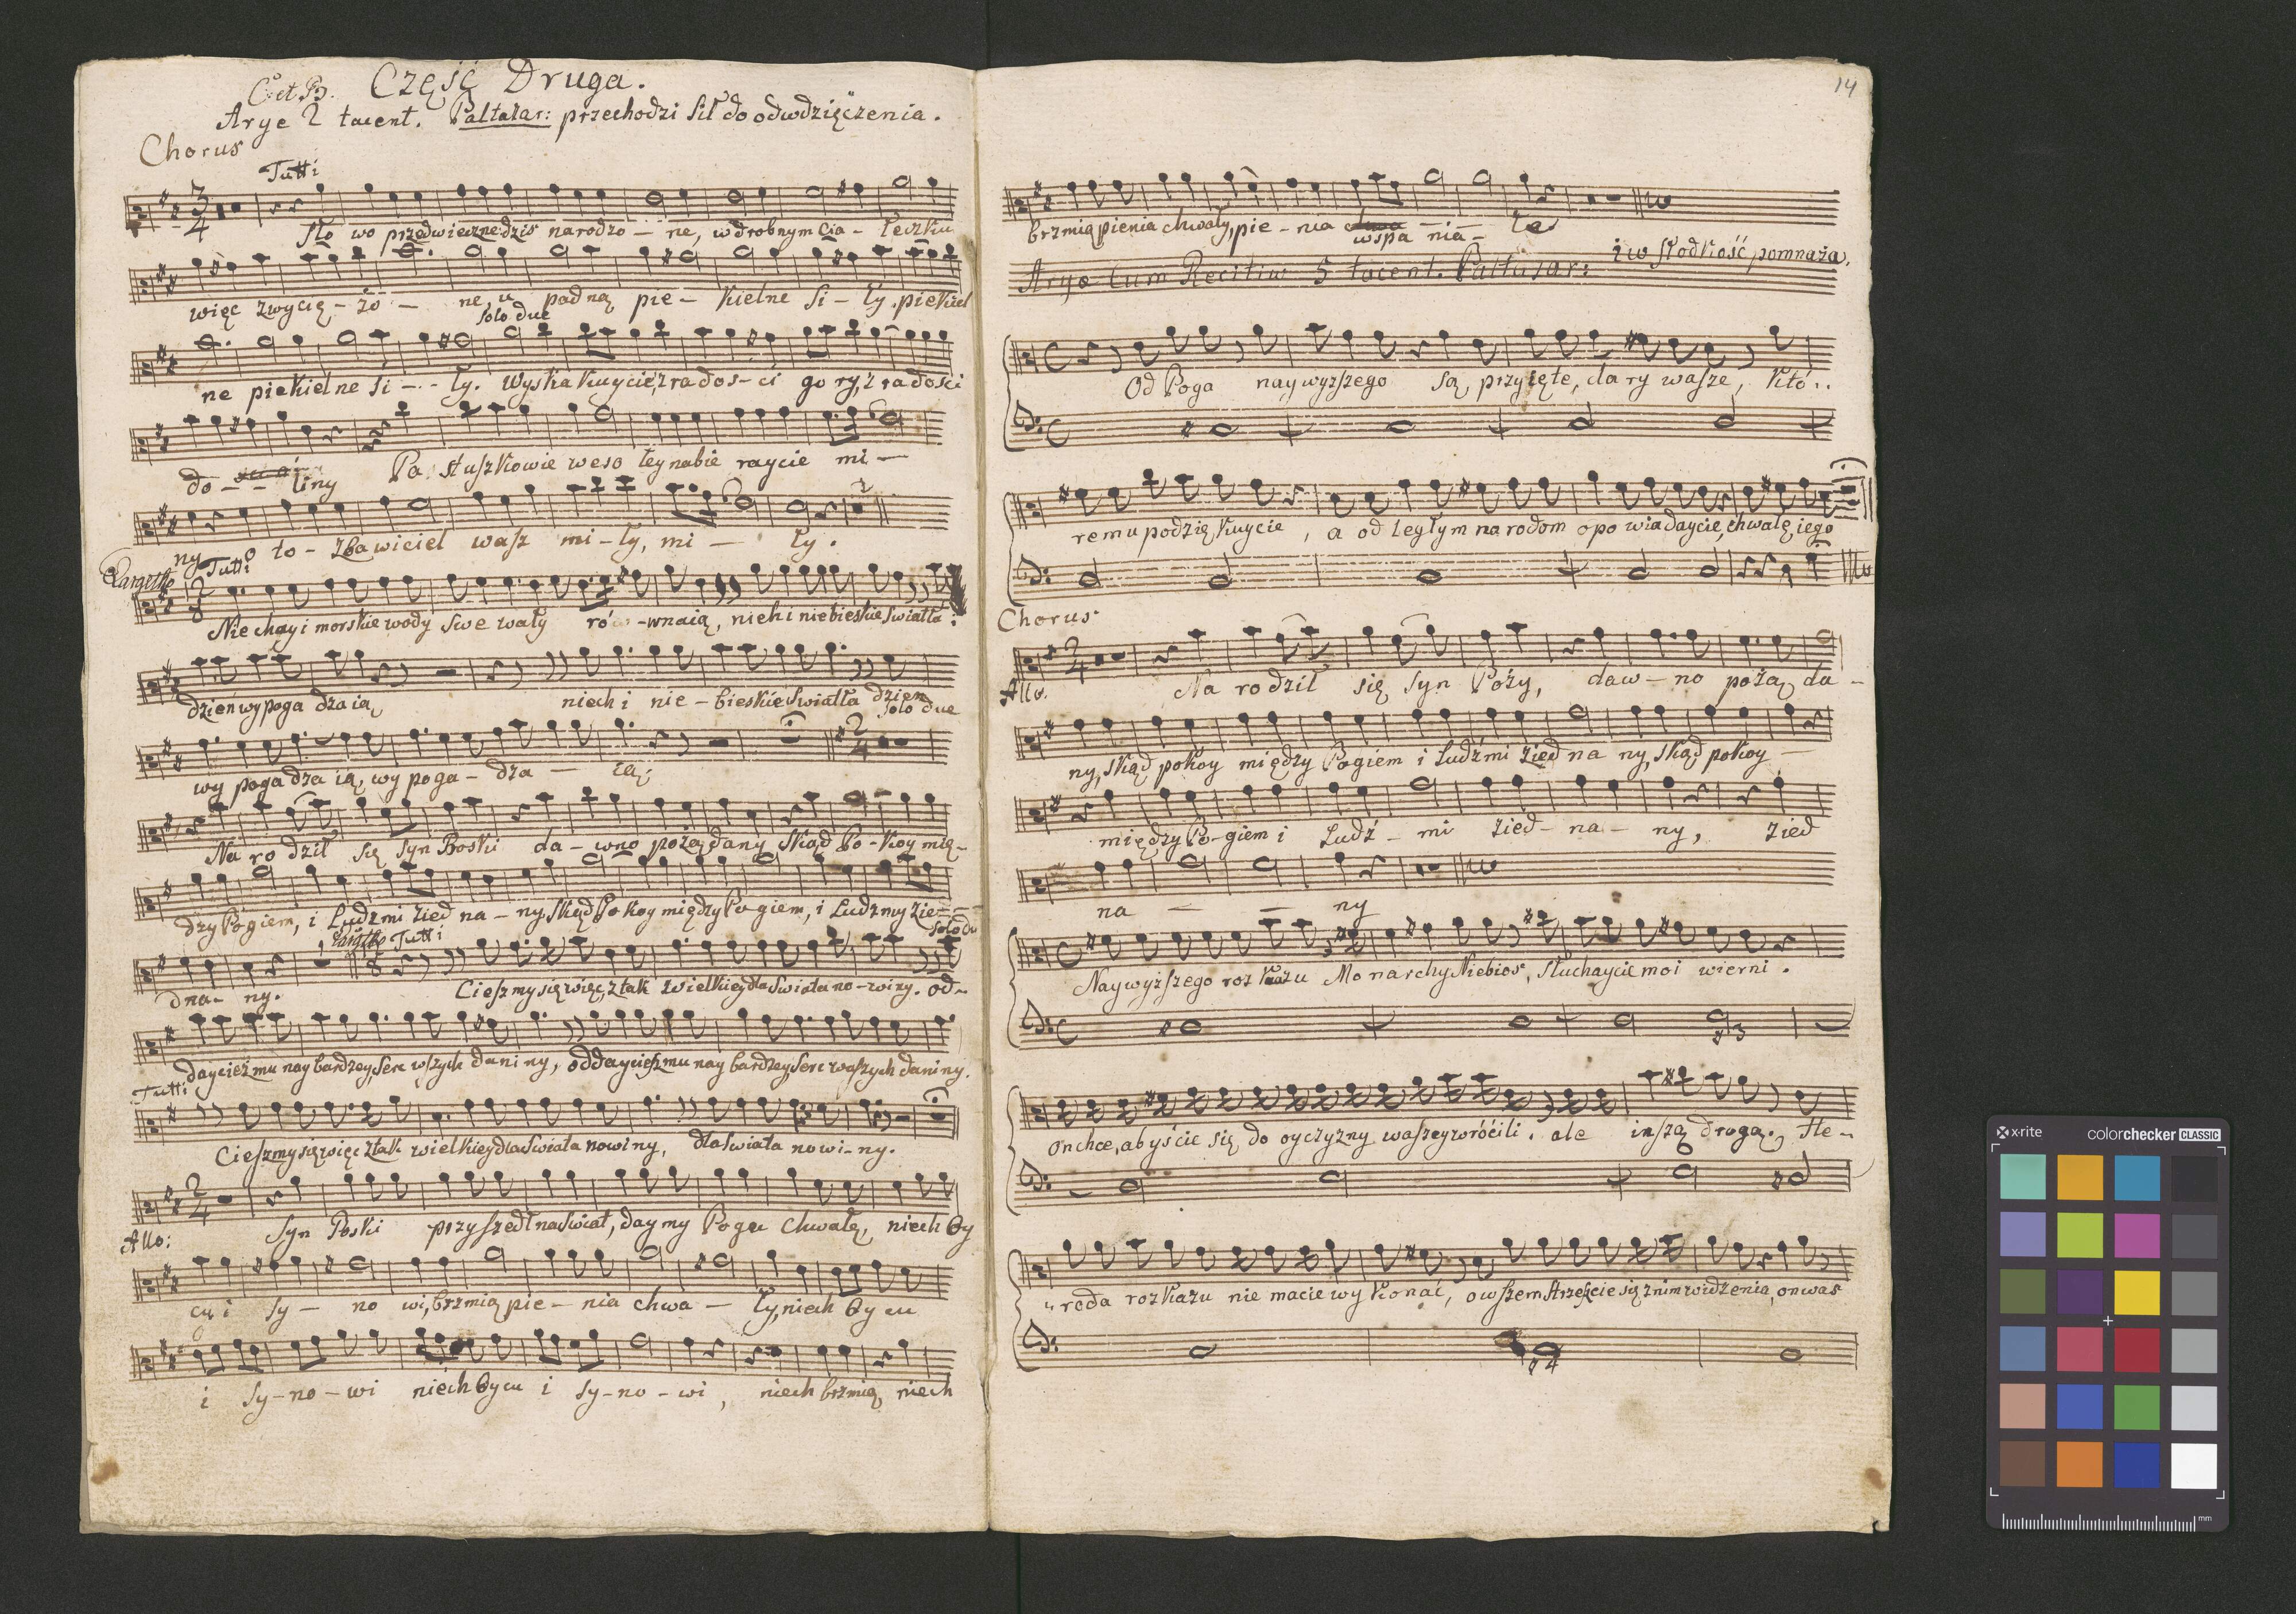 Część Druga.
C. et B.
Arye 2 tacent. Baltazar: przechodzi sił do odwdzięczenia.
Chorus
Tutti
3/4
Sło wo przedwieczne dzis narodzo - ne, w drobnym Cia - łeczku
więc zwycię - żo - ne, u padną pie - kielne si - ły. piekiel
Solo due
ne piekielne si - - ły. Wyskakuycież, z rados - ci gory, z radości
do - - liny Pa stuszkowie weso łey nabie raycie mi -
ny o to - Zbawiciel wasz mi - ły, mi - ły.
Largetto Tutti
Niechay i morskie wody swe wały ró - wnaią, niech i niebieskie swiatła:
dzień wypoga dzaią niech i nie - bieskie Swiatła dzien
Solo due
wy poga dza ią, wy poga - dza - ią;
2/4
Na ro dził się Syn Boski da - wno pożądany Skąd Po - koy mię -
dzy Bogiem, i Ludzmi zied na - ny, Skąd Pokoy między Bo giem, i Ludzmy zie -
Solo du
Largetto Tutti
dna - ny. Cieszmy się więc, z tak wielkiey dla Swiata no - winy. od -
daycież mu nay bardzey, Serc wszych dani ny, oddaycieszmu nay bardzey, Serc waszych daniny.
Tutti
Cieszmy się więc z tak wielkiey dla Swiata nowiny, dla Swiata nowi - ny.
2/4
Allo: Syn Boski przyszedł na Swiat, day my Bogu Chwałę, niech Oy
cu i Sy - no wi, brzmią pie - nia chwa - ły, niech Oy cu
i Sy - no - wi niech Oycu i Sy - no - wi, niech brzmią niech
14
brzmią pienia chwały, pie - nia wspa nia - łe
Arye Cum Recitiw 5 tacent. Baltasar: i w słodkość pomnaża.
Od Boga naywyższego Są przyięte, dary wasze, Któ..
remu podziękuycie, a od ległym narodom opo wiadaycie, chwałę iego
Chorus
2/4
Allo. Na rodził się Syn Boży, daw - no pożą da -
ny, skąd pokoy między Bogiem i Ludźmi zied na ny, skąd pokoy -
między Bo - giem i Ludź - mi zied - na - ny, zied
na - - ny
Naywyższego roz kazu Monarchy Niebios, słuchaycie moi wierni.
3
on chce, abyście się do oyczyzny waszey wrócili. ale inszą drogą, He -
6
roda rozkazu nie macie wy konać, owszem strzeżcie się z nim widzenia, on was
4
x-rite
colorchecker CLASSIC
mm